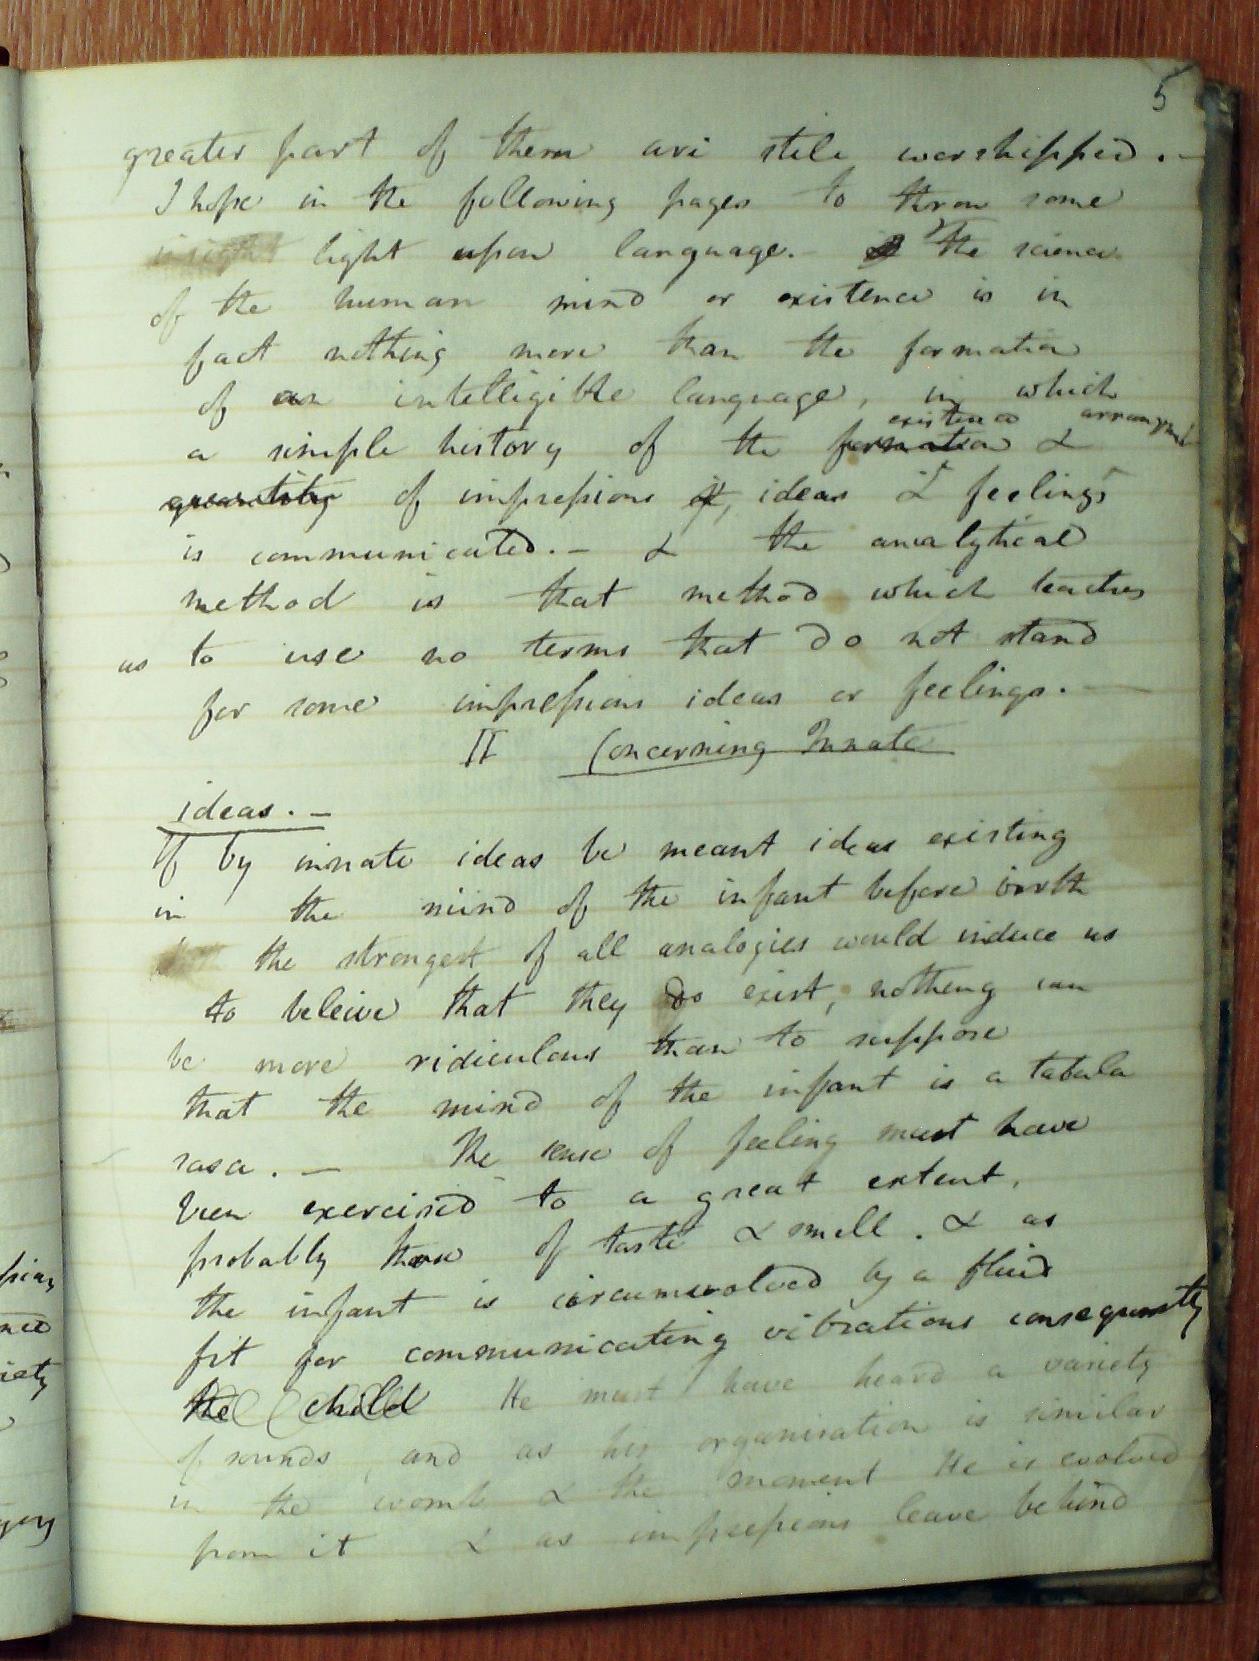 5
greater part of them are stile worshipped. -
I hope in the following pages to throw some
insight light upon language. - The science
of the human mind or existence is in
fact nothing more than the formation
of an intelligible language, in which
existence arrangment
a simple history of the formation &
quantity of impressions of, ideas & feelings
is communicated. - & the analytical
method is that method which teaches
us to use no terms that do not stand
for some impressions ideas or feelings. -
II Concerning Innate
ideas. -
If by innate ideas be meant ideas existing
in the mind of the infant before birth
the strongest of all analogies would induce us
to beleive that they do exist, nothing can
be more ridiculous than to suppose
that the mind of the infant is a tabula
rasa. - The sense of feeling must have
been exercised to a great extent,
probably those of taste & smell. & as
the infant is circumvolved by a fluid
fit for communicating vibrations consequently
the child He must have heard a variety
of sounds, and as his organisation is similar
in the womb & the moment He is evolved
from it & as impressions leave behind